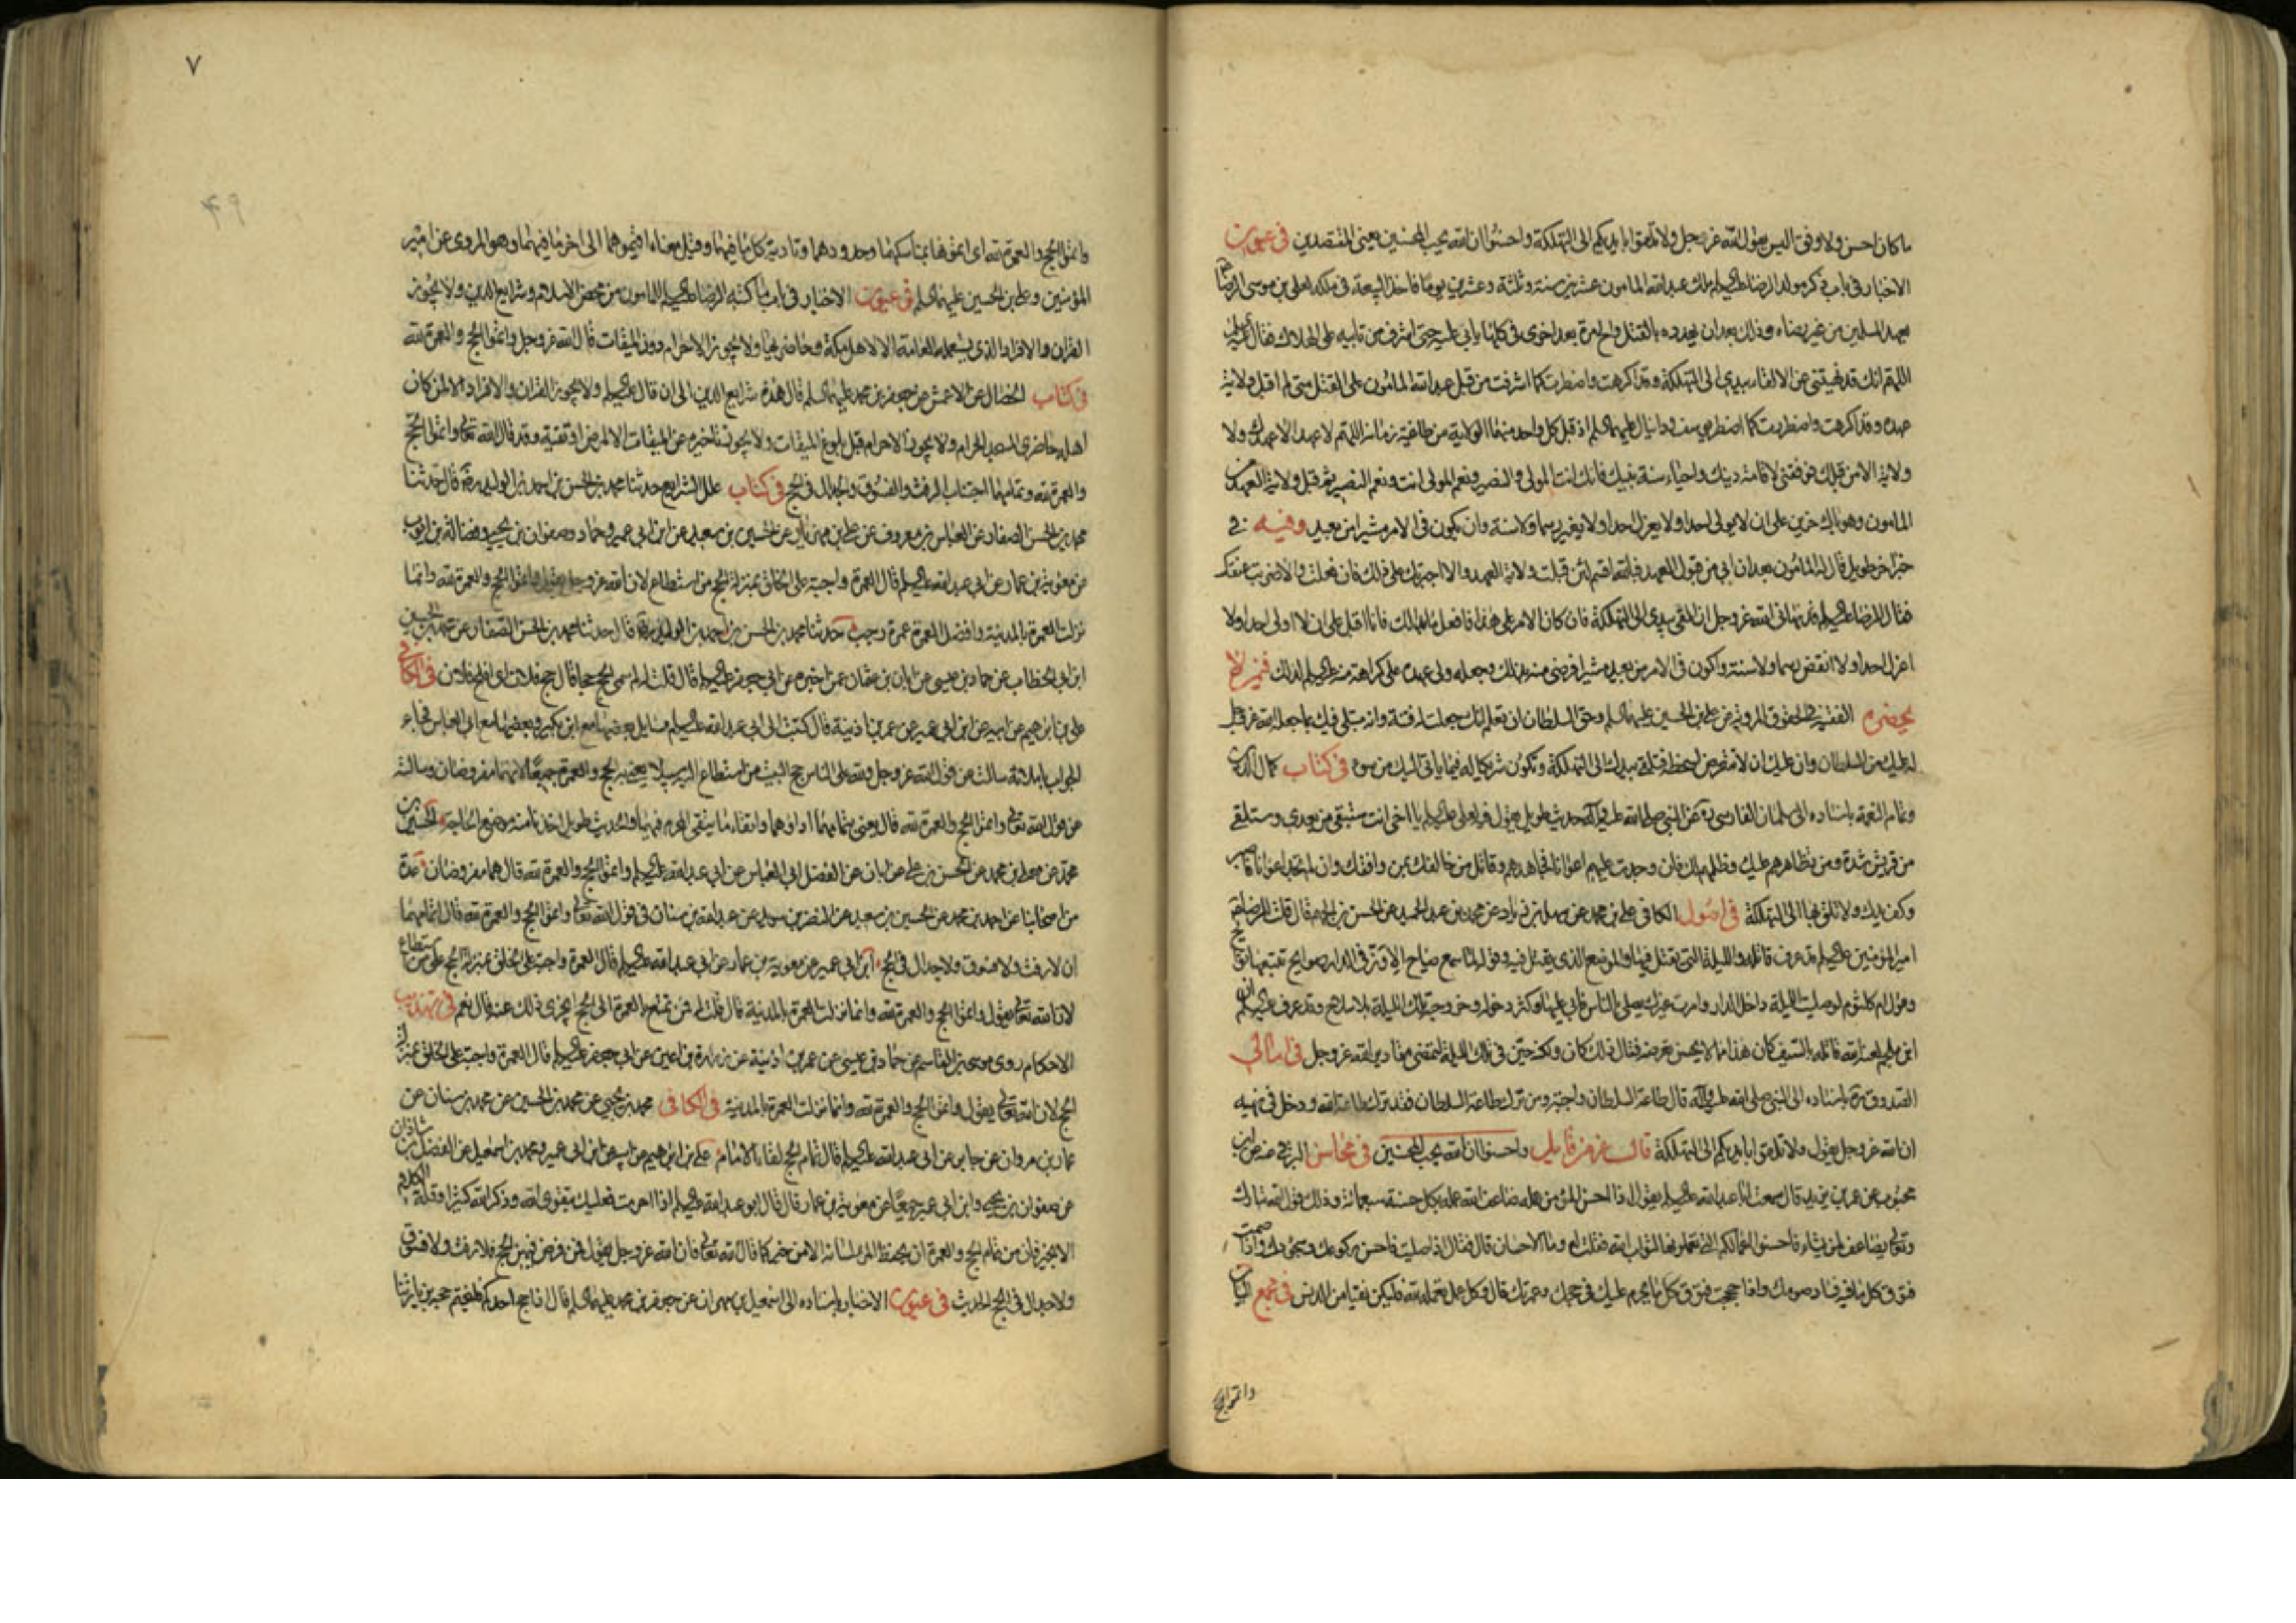 ما كان احسن ولا وفق اليس يقول الله عز وجل ولا تلقوا بايديكم الى التهلكة واحسنوا ان الله يحب المحسنين يعنى المقتصدين فى عيون
الاخبار فى باب ذكر مولد الرضا عليه السلم ملك عبد الله المامون عشرين سنة وثلثة وعشرين يوما فاخذ البيعة فى ملكه لعلى بن موسى الرضا
بعهد المسلمين من غير رضاه وذلك بعد ان يهدده بالقتل والح مرة بعد اخرى فى كلها يابى عليه حتى اشرف من تابيه على الهلاك فقال عليه السلم
اللهم انك قد نهيتنى عن الالقاء بيدى الى التهلكة وقد اكرهت واضطررت كما اشرفت من قبل عبد الله المامون على القتل متى لم اقبل ولاية
عهده وقد اكرهت واضطررت كما اضطر يوسف ودانيال عليهما السلم اذ قبل كل واحد منهما الولاية من طاغية زمانه اللهم لا عهد الا عهدك ولا
ولاية الا من قبلك فوفقنى لاقامة دينك واحياء سنة نبيك فانك انت المولى والنصير ونعم المولى انت ونعم النصير ثم قبل ولاية العهد من
المامون وهو باك حزين على ان لا يولى احدا ولا يعزل احدا ولا يغير رسما ولا سنة وان يكون فى الامر مشيرا من بعيد وفيه فى
خبر اخر طويل قال له المامون بعد ان ابى من قبول العهد فبالله اقسم لئن قبلت ولاية العهد والا اجبرتك على ذلك فان فعلت والا ضربت عنقك
فقال الرضا عليه السلم قد نهانى الله عز وجل ان القى بيدى الى التهلكة فان كان الامر على هذا فافعل ما بدا لك فانا اقبل على ان لا اولى احدا ولا
اعزل احدا ولا انقض رسما ولا سنة واكون فى الامر من بعيد مشيرا فرضى منه بذلك وجعله ولى عهده على كراهة منه عليه السلم لذلك فى من لا
يحضره الفقيه فى الحقوق المروية عن على بن الحسين عليهما السلم وحق السلطان ان تعلم انك جعلت له فتنة وانه مبتلى فيك بما جعله الله عز وجل
له عليك من السلطان وان عليك ان لا تتعرض لسخطه فتلقى بيدك الى التهلكة وتكون شريكا له فيما ياتى اليك من سوء فى كتاب كمال الدين
وتمام النعمة باسناده الى سلمان الفارسى ره عن النبى صلى الله عليه وآله حديث طويل يقول فيه لعلى عليه السلم يا اخى انت ستبقى من بعدى وستلقى
من قريش شدة ومن تظاهرهم عليك وظلمهم لك فان وجدت عليهم اعوانا فجاهدهم وقاتل من خالفك بمن وافقك وان لم تجد اعوانا فاصبر
وكف يدك ولا تلق بها الى التهلكة فى اصول الكافى على بن محمد عن سهل بن زياد عن محمد بن عبد الحميد عن الحسن بن الجهم قال قلت للرضا ان
امير المؤمنين عليه السلم قد عرف قاتله والليلة التى يقتل فيها والموضع الذى يقتل فيه وقوله لما سمع صياح الاوز فى الدار صوايح تتبعها نوايح
وقول ام كلثوم لو صليت الليلة داخل الدار وامرت غيرك يصلى بالناس فابى عليها وكثر دخوله وخروجه تلك الليلة بلا سلاح وقد عرف عليه السلم ان
ابن ملجم لعنه الله قاتله بالسيف كان هذا ما لا يحسن تعرضه فقال ذلك كان ولكنه خير فى تلك الليلة لتمضى مقادير الله عز وجل فى امالى
الصدوق ره باسناده الى النبى صلى الله عليه وآله قال طاعة السلطان واجبة ومن ترك طاعة السلطان فقد ترك طاعة الله ودخل فى نهيه
ان الله عز وجل يقول ولا تلقوا بايديكم الى التهلكة قال عز من قايل واحسنوا ان الله يحب المحسنين فى محاسن البرقى عنه عن ابن
محبوب عن عمر بن يزيد قال سمعت ابا عبد الله عليه السلم يقول اذا احسن المؤمن عمله ضاعف الله عمله بكل حسنة سبعمائة وذلك قول الله تبارك
وتعالى يضاعف لمن يشاء فاحسنوا اعمالكم التى تعملونها لثواب الله فقلت له وما الاحسان قال فقال اذا صليت فاحسن ركوعك وسجودك واذا صمت
فتوق كل ما فيه فساد صومك واذا حججت فتوق كل ما يحرم عليك فى حجك وعمرتك قال وكل عمل تعمله لله فليكن نقيا من الدنس فى مجمع البيان
واتموا الحج
٧
۴۹
واتموا الحج والعمرة لله اى اتموهما بمناسكهما وحدودهما وتادية كل ما فيهما وقيل معناه اقيموهما الى اخر ما فيهما وهو المروى عن امير
المؤمنين وعلى بن الحسين عليهما السلم فى عيون الاخبار فى باب ما كتبه الرضا عليه السلم للمامون من محض الاسلام وشرايع الدين ولا يجوز
القران والافراد الذى يستعمله العامة الا لاهل مكة وحاضريها ولا يجوز الاحرام دون الميقات قال الله عز وجل واتموا الحج والعمرة لله
فى كتاب الخصال عن الاعمش عن جعفر بن محمد عليهما السلم قال هذه شرايع الدين الى ان قال عليه السلم ولا يجوز القران والافراد الا لمن كان
اهله حاضرى المسجد الحرام ولا يجوز الاحرام قبل بلوغ الميقات ولا يجوز تاخيره عن الميقات الا لمرض او تقية وقد قال الله تعالى واتموا الحج
والعمرة لله وتمامهما اجتناب الرفث والفسوق والجدال فى الحج فى كتاب علل الشرايع حدثنا محمد بن الحسن بن احمد بن الوليد ره قال حدثنا
محمد بن الحسن الصفار عن العباس بن معروف عن على بن مهزيار عن الحسين بن سعيد عن ابن ابى عمير وحماد وصفوان بن يحيى وفضالة بن ايوب
عن معوية بن عمار عن ابى عبد الله عليه السلم قال العمرة واجبة على الخلق بمنزلة الحج من استطاع لان الله عز وجل يقول واتموا الحج والعمرة لله وانما
نزلت العمرة بالمدينة وافضل العمرة عمرة رجب حدثنا محمد بن الحسن بن احمد بن الوليد ره قال حدثنا محمد بن الحسن الصفار عن محمد بن الحسين
ابن ابى الخطاب عن حماد بن عيسى عن ابان بن عثمان عمن اخبره عن ابى جعفر عليه السلم قال قلت له لم سمى الحج حجا قال حج فلان اى افلح فلان فى الكافى
على بن ابرهيم عن ابيه عن ابن ابى عمير عن عمر بن اذينة قال كتبت الى ابى عبد الله عليه السلم بمسايل بعضها مع ابن بكير وبعضها مع ابى العباس فجاء
الجواب باملائه سالت عن قول الله عز وجل ولله على الناس حج البيت من استطاع اليه سبيلا يعنى به الحج والعمرة جميعا لانهما مفروضان وسالته
عن قول الله تعالى واتموا الحج والعمرة لله قال يعنى بتمامهما اداؤهما واتقاء ما يتقى المحرم فيهما والحديث طويل اخذنا منه موضع الحاجة الحسين بن
محمد عن معلى بن محمد عن الحسن بن على عن ابان عن الفضل ابى العباس عن ابى عبد الله عليه السلم واتموا الحج والعمرة لله قال هما مفروضان عدة
من اصحابنا عن احمد بن محمد عن الحسين بن سعيد عن النضر بن سويد عن عبد الله بن سنان فى قول الله تعالى واتموا الحج والعمرة لله قال اتمامهما
ان لا رفث ولا فسوق ولا جدال فى الحج ابن ابى عمير عن معوية بن عمار عن ابى عبد الله عليه السلم قال العمرة واجبة على الخلق بمنزلة الحج على من استطاع
لان الله تعالى يقول واتموا الحج والعمرة لله وانما نزلت العمرة بالمدينة قال قلت له فمن تمتع بالعمرة الى الحج ايجزى ذلك عنه قال نعم فى تهذيب
الاحكام روى موسى بن القاسم عن حماد بن عيسى عن عمر بن اذينة عن زرارة بن اعين عن ابى جعفر عليه السلم قال العمرة واجبة على الخلق بمنزلة
الحج لان الله تعالى يقول واتموا الحج والعمرة لله وانما نزلت العمرة بالمدينة فى الكافى محمد بن يحيى عن محمد بن الحسين عن محمد بن سنان عن
عمار بن مروان عن جابر عن ابى عبد الله عليه السلم قال تمام الحج لقاء الامام على بن ابرهيم عن ابيه عن ابن ابى عمير ومحمد بن اسمعيل عن الفضل بن شاذان
عن صفوان بن يحيى وابن ابى عمير جميعا عن معوية بن عمار قال قال ابو عبد الله عليه السلم اذا احرمت فعليك بتقوى الله وذكر الله كثيرا وقلة الكلام
الا بخير فان من تمام الحج والعمرة ان يحفظ المرء لسانه الا من خير كما قال الله تعالى فان الله عز وجل يقول فمن فرض فيهن الحج فلا رفث ولا فسوق
ولا جدال فى الحج الحديث فى عيون الاخبار باسناده الى اسمعيل بن مهران عن جعفر بن محمد عليهما السلم قال اذا حج احدكم فليختم حجه بزيارتنا